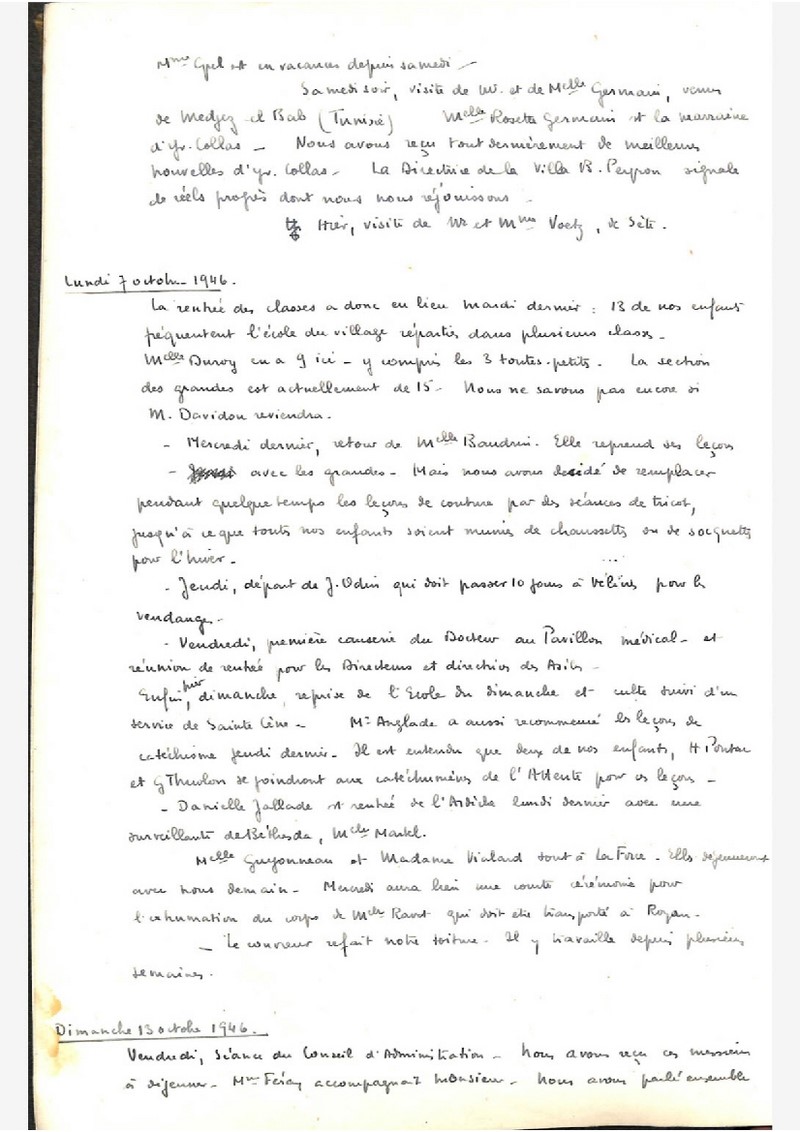 Mme Gpel est en vacances depuis samedi —
Samedi soir, visite de M. et de Melle Germain, venus
de Medjez el Bab (Tunisie) Melle Rosette Germain est la marraine
d'Yv. Collas — Nous avons reçu tout dernièrement de meilleures
nouvelles d'Yv. Collas — La Directrice de la Villa B. Peyron signale
de réels progrès dont nous nous réjouissons —
Hier, visite de Mr et Mme Voetz, de Sète.
Lundi 7 octobre 1946.
La rentrée des classes a donc eu lieu mardi dernier : 13 de nos enfants
fréquentent l'école du village répartis dans plusieurs classes —
Melle Duroy en a 9 ici — y compris les 3 toutes-petites. La section
des grandes est actuellement de 15 — Nous ne savons pas encore si
M. Davidou reviendra.
- Mercredi dernier, retour de Melle Baudrin. Elle reprend ses leçons
- avec les grandes — Mais nous avons décidé de remplacer
pendant quelque temps les leçons de couture par des séances de tricot,
jusqu'à ce que toutes nos enfants soient munies de chaussettes ou de socquettes
pour l'hiver —
- Jeudi, départ de J. Odin qui doit passer 10 jours à Vélines pour les
vendanges.
- Vendredi, première causerie du Docteur au Pavillon médical — et
réunion de rentrée pour les Directeurs et directrices des Asiles —
Enfin, hier dimanche, reprise de l'Ecole du dimanche et culte suivi d'un
service de Sainte Cène — Mr Anglade a aussi recommencé les leçons de
catéchisme jeudi dernier — Il est entendu que deux de nos enfants, H
et G se joindront aux catéchumènes de l'Attente pour ces leçons —
- Danielle Jallade est rentrée de l'Ardèche lundi dernier avec une
surveillante de Béthesda, Melle Markl.
Melle Guyonneau et Madame Vialard sont à La Force — Elles déjeuneront
avec nous demain — Mercredi aura lieu une courte cérémonie pour
l'exhumation du corps de Melle Ravet qui doit être transporté à Royan —
— Le couvreur refait notre toiture — Il y travaille depuis plusieurs
semaines.
Dimanche 13 octobre 1946.
Vendredi, Séance du Conseil d'Administration — Nous avons reçu ces messieurs
à déjeuner — Mme accompagnait Monsieur — Nous avons parlé ensemble